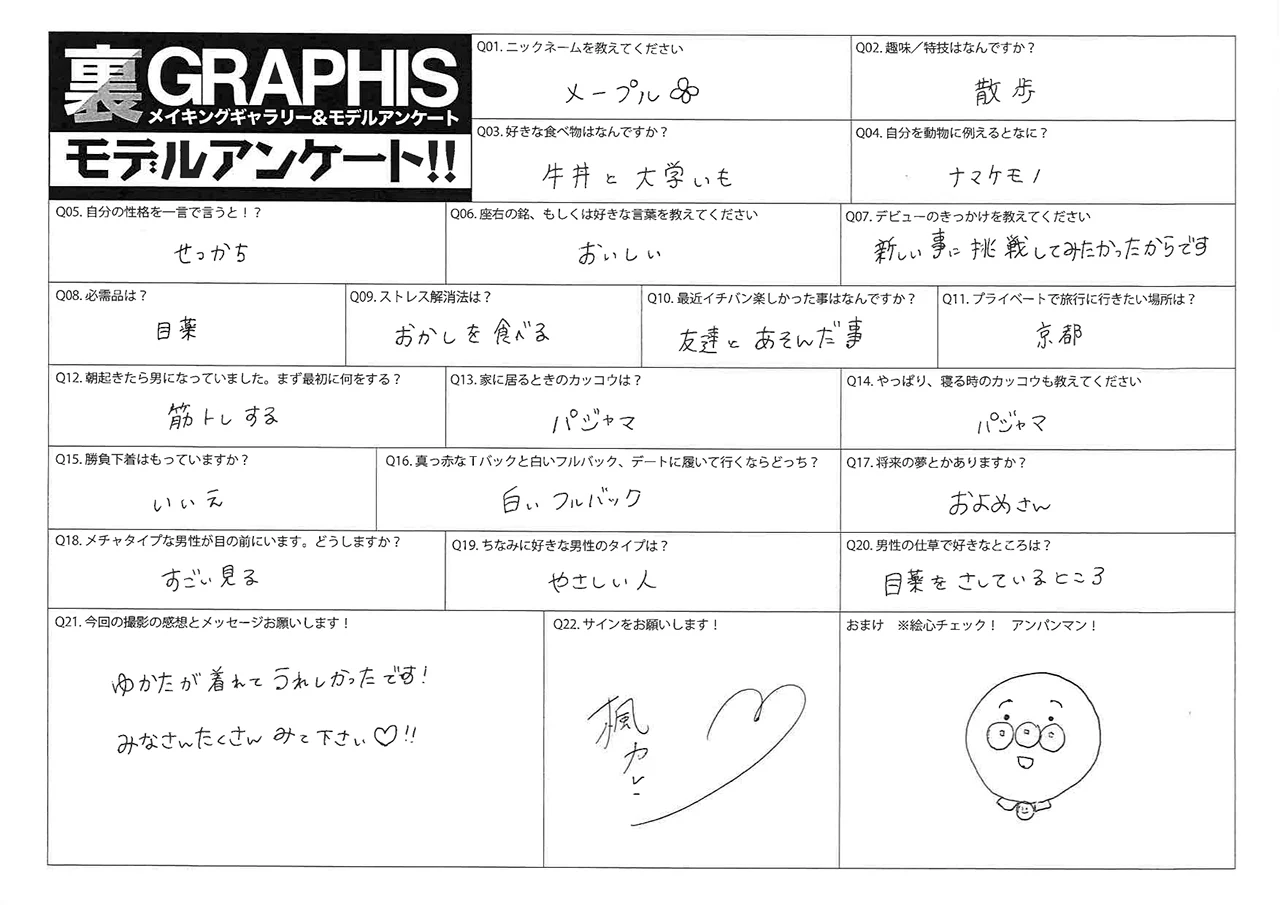 裏GRAPHIS
メイキングギャラリー&モデルアンケート
モデルアンケート!!
Q01. ニックネームを教えてください
メープル
Q02. 趣味／特技はなんですか？
散歩
Q03. 好きな食べ物はなんですか？
牛丼と大学いも
Q04. 自分を動物に例えるとなに？
ナマケモノ
Q05. 自分の性格を一言で言うと！？
せっかち
Q06. 座右の銘、もしくは好きな言葉を教えてください
おいしい
Q07. デビューのきっかけを教えてください
新しい事に挑戦してみたかったからです
Q08. 必需品は？
目薬
Q09. ストレス解消法は？
おかしを食べる
Q10. 最近イチバン楽しかった事はなんですか？
友達とあそんだ事
Q11. プライベートで旅行に行きたい場所は？
京都
Q12. 朝起きたら男になっていました。まず最初に何をする？
筋トレする
Q13. 家に居るときのカッコウは？
パジャマ
Q14. やっぱり、寝る時のカッコウも教えてください
パジャマ
Q15. 勝負下着はもっていますか？
いいえ
Q16. 真っ赤なTバックと白いフルバック、デートに履いて行くならどっち？
白いフルバック
Q17. 将来の夢とかありますか？
およめさん
Q18. メチャタイプな男性が目の前にいます。どうしますか？
すごい見る
Q19. ちなみに好きな男性のタイプは？
やさしい人
Q20. 男性の仕草で好きなところは？
目薬をさしているところ
Q21. 今回の撮影の感想とメッセージお願いします！
ゆかたが着れてうれしかったです！
みなさんたくさんみて下さい♡!!
Q22. サインをお願いします！
楓カレン
おまけ　※絵心チェック！　アンパンマン！